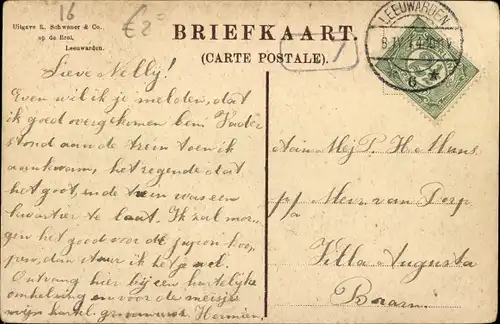 16
€2⁰
Uitgave R. Schwener & Co.,
op de Brol,
Leeuwarden.
BRIEFKAART.
(CARTE POSTALE).
LEEUWARDEN
6 *
Lieve Nelly!
Even wil ik je melden, dat
ik goed overgekomen ben. Vader
stond aan de trein toen ik
aankwam, het regende dat
het goot, en de trein was een
kwartier te laat. Ik zal mor-
gen het goed voor de jupon koo-
pen, dan stuur ik het je wel.
Ontvang hier bij een hartelijke
omhelzing en voor de meisjes
mijn hartel. groeten van Hermien.
Aan Mej P. H.
p/a Mevr. van Dorp
Villa Augusta
Baarn.